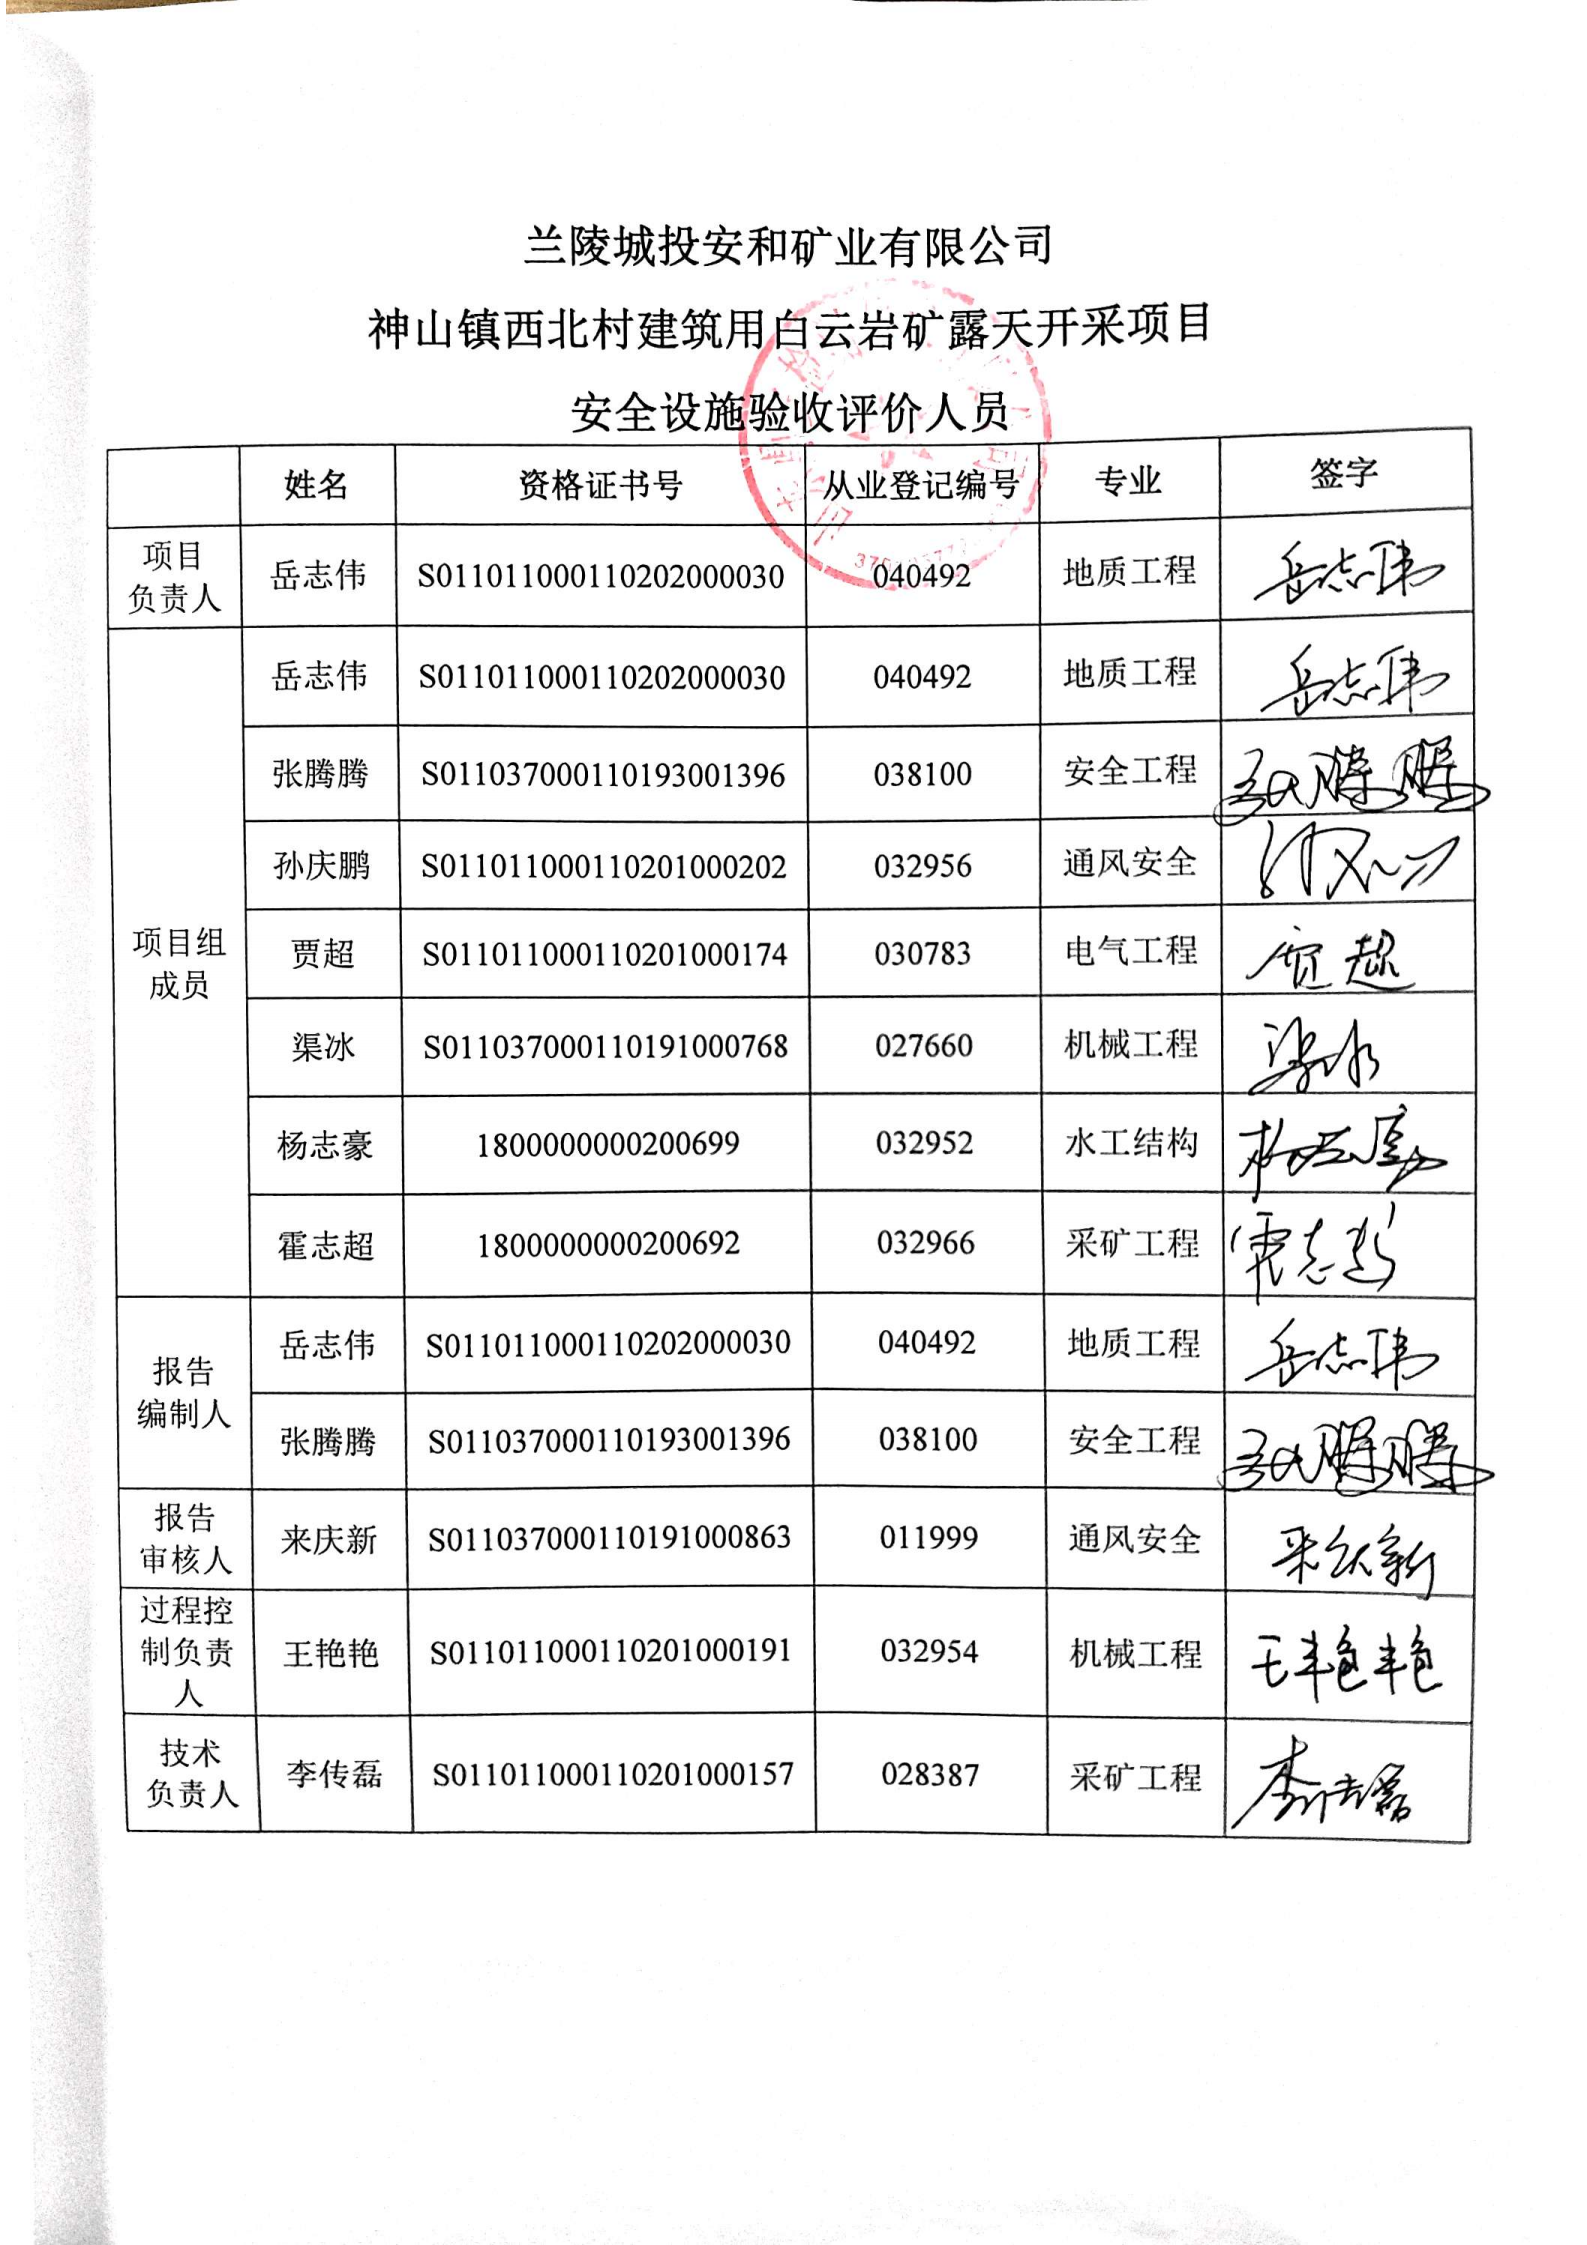 兰陵城投安和矿业有限公司
神山镇西北村建筑用白云岩矿露天开采项目
安全设施验收评价人员
姓名 资格证书号 从业登记编号 专业 签字
项目
负责人 岳志伟 S011011000110202000030 040492 地质工程 岳志伟
项目组
成员
岳志伟 S011011000110202000030 040492 地质工程 岳志伟
张腾腾 S011037000110193001396 038100 安全工程 张腾腾
孙庆鹏 S011011000110201000202 032956 通风安全
贾超 S011011000110201000174 030783 电气工程 贾超
渠冰 S011037000110191000768 027660 机械工程 渠冰
杨志豪 1800000000200699 032952 水工结构 杨志豪
霍志超 1800000000200692 032966 采矿工程 霍志超
报告
编制人
岳志伟 S011011000110202000030 040492 地质工程 岳志伟
张腾腾 S011037000110193001396 038100 安全工程 张腾腾
报告
审核人 来庆新 S011037000110191000863 011999 通风安全 来庆新
过程控
制负责
人
王艳艳 S011011000110201000191 032954 机械工程 王艳艳
技术
负责人 李传磊 S011011000110201000157 028387 采矿工程 李传磊